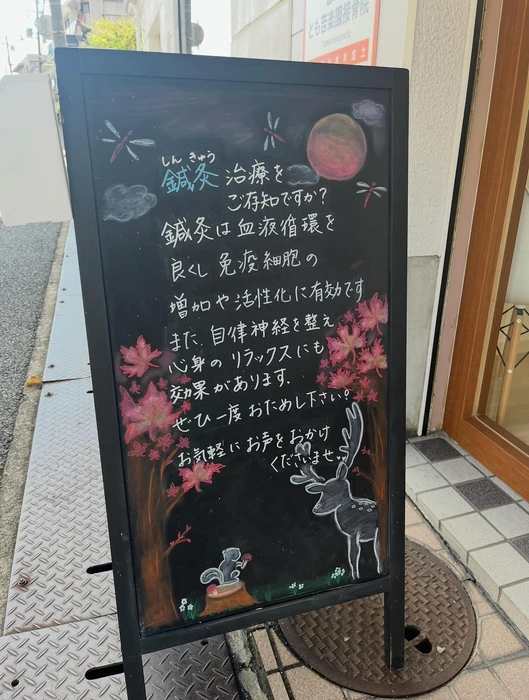 とも苦楽園接骨院
しん きゅう
鍼灸 治療を
ご存知ですか?
鍼灸は血液循環を
良くし 免疫細胞の
増加や活性化に有効です
また、自律神経を整え
心身のリラックスにも
効果があります。
ぜひ一度おためし下さい。
お気軽にお声をおかけ
くださいませ